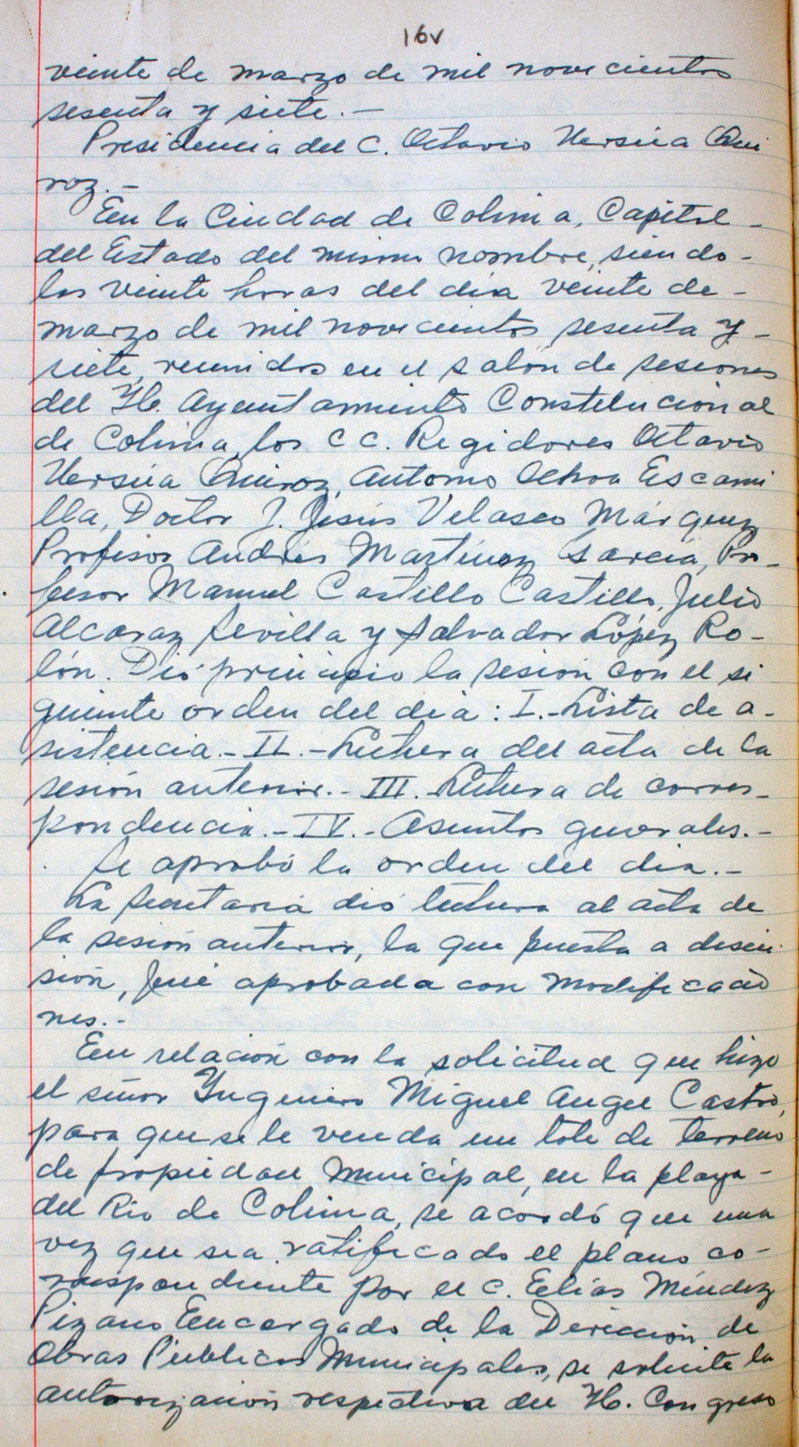 16v
veinte de marzo de mil novecientos
sesenta y siete.-
Presidencia del C. Octavio Ursúa Qui
roz.-
En la Ciudad de Colima, Capital -
del Estado del mismo nombre, siendo -
las veinte horas del día veinte de -
marzo de mil novecientos sesenta y -
siete, reunidos en el salón de sesiones
del H. Ayuntamiento Constitucional
de Colima, los CC. Regidores Octavio
Ursúa Quiroz, Antonio Ochoa Escami
lla, Doctor J. Jesús Velasco Márquez
Profesor Andrés Martínez García, Pro-
fesor Manuel Castillo Castillo, Julio
Alcaraz Sevilla y Salvador López Ro-
lón. Dió principio la sesión con el si
guiente orden del día: I.- Lista de a-
sistencia.- II.- Lectura del acta de la
sesión anterior.- III.- Lectura de corres-
pondencia.- IV.- Asuntos generales.-
Se aprobó la orden del día.-
La Secretaría dió lectura al acta de
la sesión anterior, la que puesta a discu
sión, fué aprobada con modificacio
nes.-
En relación con la solicitud que hizo
el señor Yngeniero Miguel Angel Castro,
para que se le venda un lote de terreno
de propiedad municipal, en la playa -
del Río de Colima, se acordó que una
vez que sea ratificado el plano co-
rrespondiente por el C. Elías Méndez
Pizano Encargado de la Dirección de
Obras Públicas Municipales, se solicite la
autorización respectiva del H. Congreso